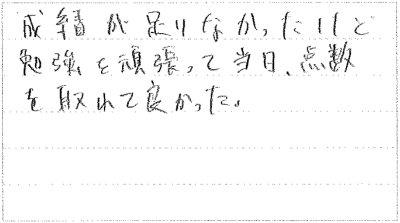 成績が足りなかったけど
勉強を頑張って当日、点数
を取れて良かった。